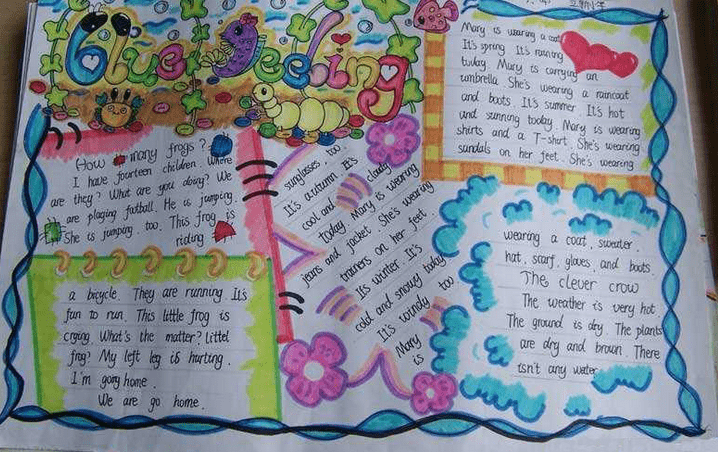 Blue Feeling
How many frogs?
I have fourteen children. Where
are they? What are you doing? We
are playing futball. He is jumping.
She is jumping. too. This frog is
riding
a bicycle. They are running. It's
fun to run. This little frog is
crying. What's the matter? Littel
frog? My left leg is hurting.
I'm gong home.
We are go home.
Mary is wearing a coat
It's spring. It's raining
today. Mary is carrying an
umbrella. She's wearing a raincoat
and boots. It's summer. It's hot
and sunning today. Mary is wearing
shirts and a T-shirt. She's wearing
sandals on her feet. She's wearing
sunglasses too.
It's autumn. It's
cool and cloudy
today. Mary is wearing
jeans and jacket. She's wearing
trainers on her feet.
It's winter. It's
cold and snowy today.
It's windy too.
Mary
is
wearing a coat, sweater.
hat, scarf, gloves, and boots.
The clever crow
The weather is very hot.
The ground is dry. The plants
are dry and brown. There
isn't any water